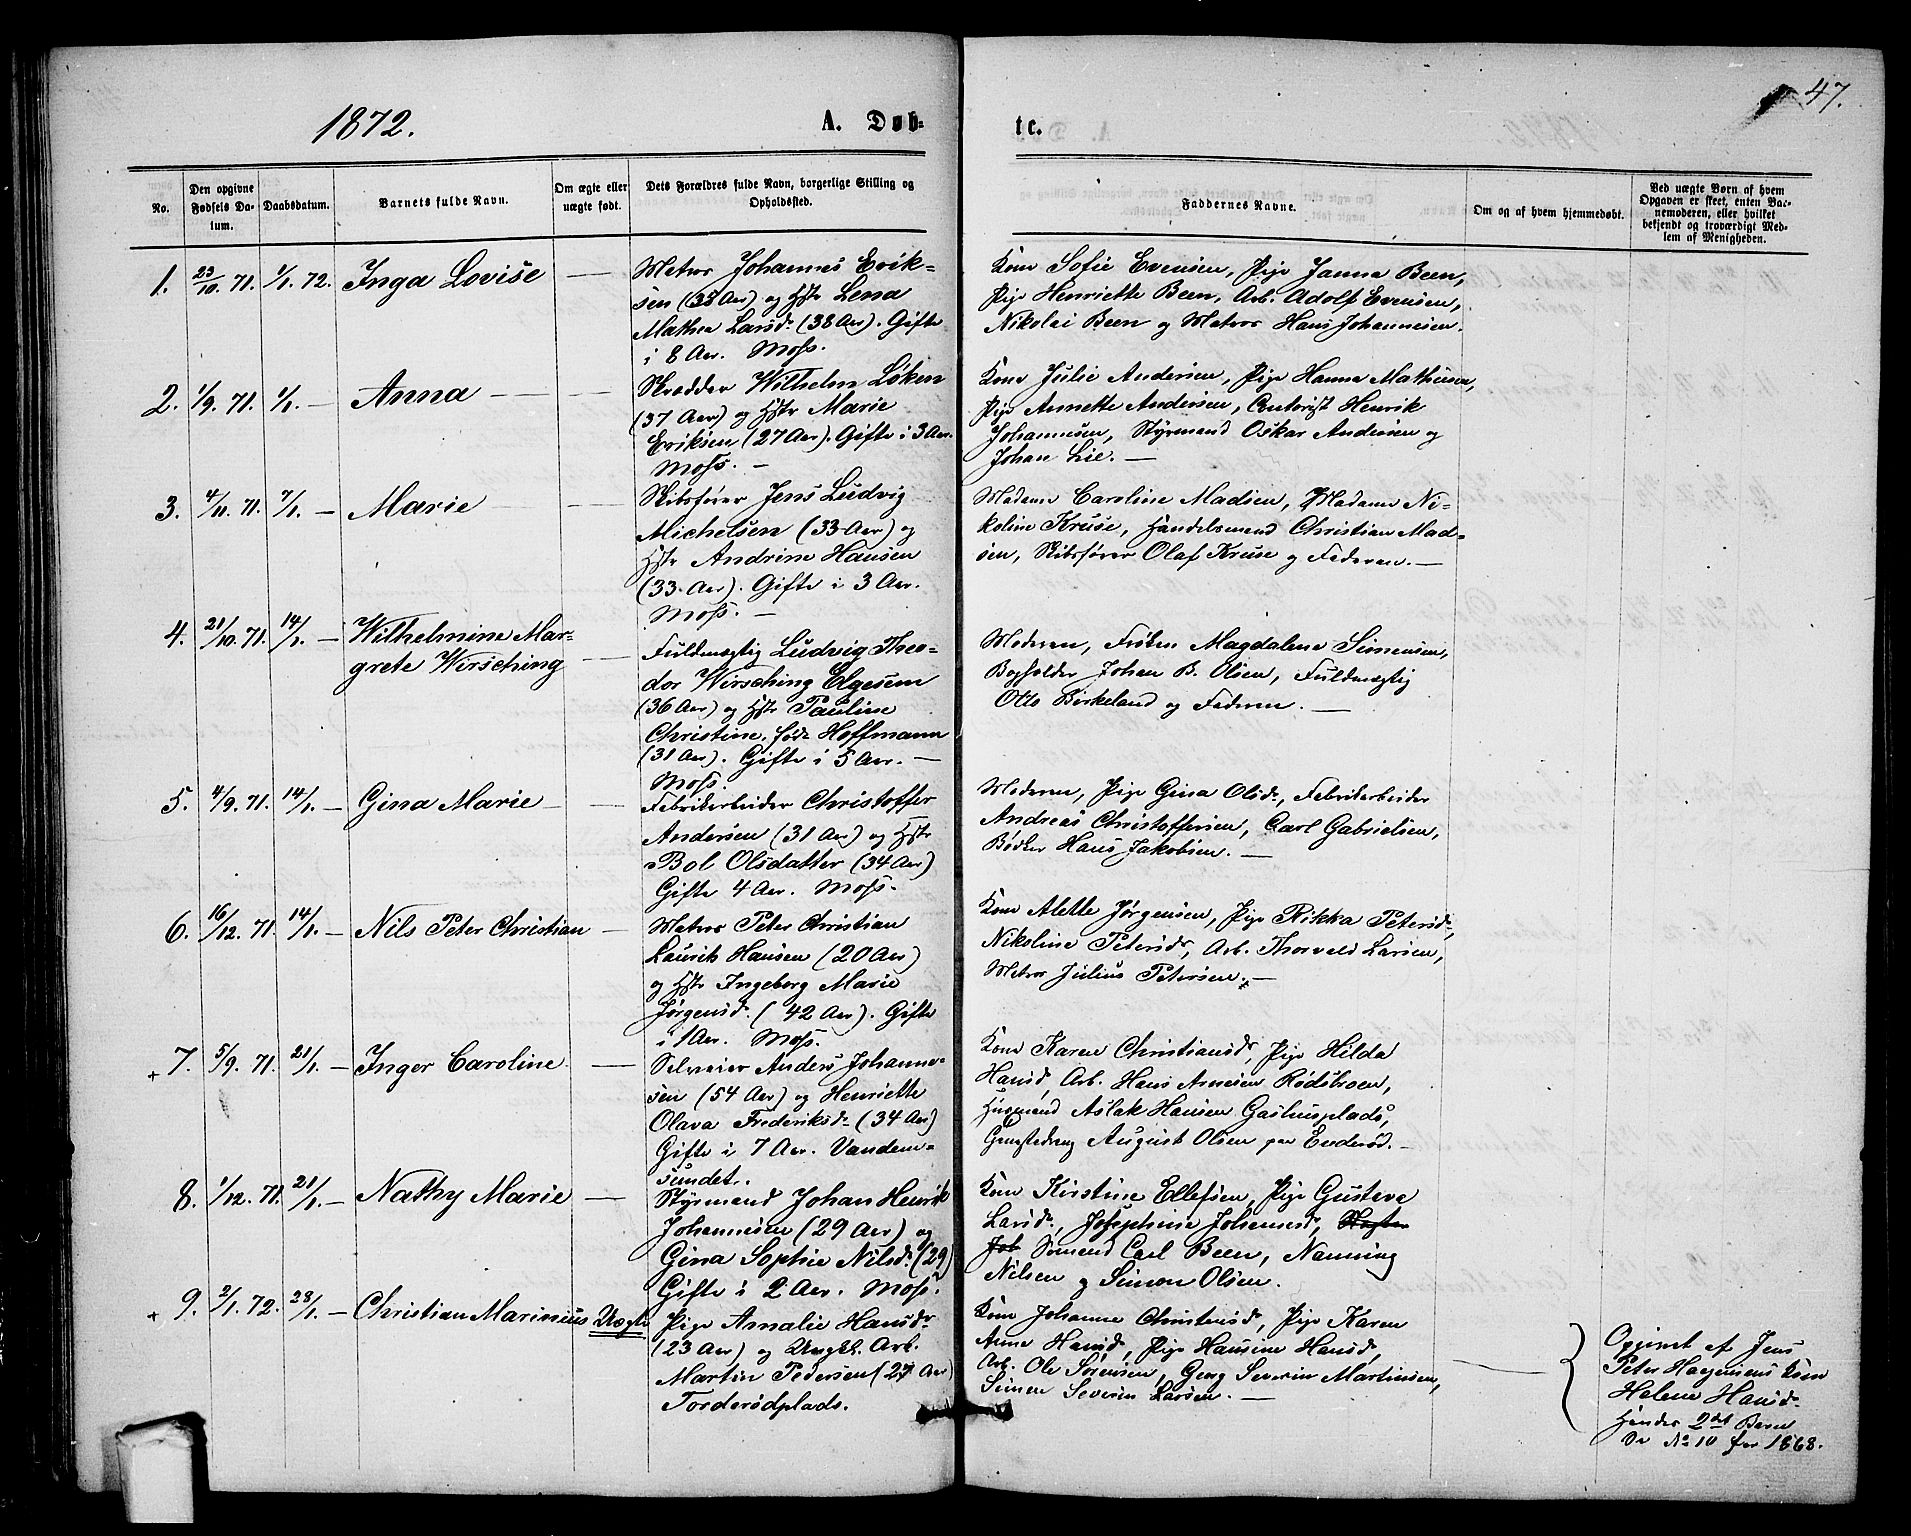 1872.
A. Døb-
te.
47.
No.
Den opgivne
Fødsels Da-
tum.
Daabsdatum.
Barnets fulde Navn.
Om ægte eller
uægte født.
Dets Forældres fulde Navn, borgerlige Stilling og
Opholdssted.
Faddernes Navne.
Om og af hvem hjemmedøbt.
Ved uægte Børn af hvem
Opgaven er skeet, enten Bar-
nemoderen, eller hvilket
bekjendt og troværdigt Med-
lem af Menigheden.
1. 23/10. 71. 1/1. 72. Inga Lovise —
Matros Johannes Erik-
sen (33 Aar) og Hstr Lena
Mathea Larsd. (38 Aar). Gifte
i 8 Aar. Moss.
Kone Sofie Evensen, Pige Janna Been,
Pige Henriette Been, Arb. Adolf Evensen,
Nikolai Been og Matros Hans Johannesen.
2. 1/9. 71. 1/1. — Anna — —
Skrædder Wilhelm Løken
(37 Aar) og Hstr Marie
Eriksen (27 Aar). Gifte i 3 Aar.
Moss. —
Kone Julie Andersen, Pige Hanna Mathisen,
Pige Annette Andersen, Contorist Henrik
Johannesen, Styrmand Oskar Andersen og
Johan Lie. —
3. 4/11. 71. 7/1. — Marie — —
Skibsfører Jens Ludvig
Michelsen (33 Aar) og
Hstr Andrine Hansen
(33 Aar). Gifte i 3 Aar.
Moss. —
Madame Caroline Madsen, Madame Ni-
koline Kruse, Handelsmand Christian Mad-
sen, Skibsfører Olaf Kruse og Faderen. —
4. 21/10. 71. 14/1. — Wilhelmine Mar-
grete Wirsching —
Fuldmægtig Ludvig Theo-
dor Wirsching Elgesem
(36 Aar) og Hstr Pauline
Christine, født Hoffmann
(31 Aar). Gifte i 5 Aar. —
Moss.
Moderen, Frøken Magdalene Simensen,
Bogholder Johan B. Olsen, Fuldmægtig
Otto Birkeland og Faderen. —
5. 4/9. 71. 14/1. — Gina Marie — —
Fabrikarbeider Christoffer
Andersen (31 Aar) og Hstr
Bol Olsdatter (34 Aar)
Gifte 4 Aar. Moss.
Moderen, Pige Gina Olsd., Fabrikarbeider
Andreas Christoffersen, Carl Gabrielsen,
Bødker Hans Jakobsen. —
6. 16/12. 71. 14/1. — Nils Peter Christian —
Matros Peter Christian
Laurits Hansen (20 Aar)
og Hstr Ingeborg Marie
Jørgensd. (42 Aar). Gifte
i 1 Aar. Moss.
Kone Alette Jørgensen, Pige Rikka Petersd.,
Nikoline Petersd., Arb. Thorvald Larsen,
Matros Julius Petersen. —
+ 7. 5/9. 71. 21/1. — Inger Caroline —
Selveier Anders Johanne-
sen (54 Aar) og Henriette
Olava Frederiksd. (34 Aar)
Gifte i 7 Aar. Vandem-
sundet.
Kone Karen Christiansd., Pige Hilda
Hansd., Arb. Hans Arnesen Rødsbroen,
Husmand Aslak Hansen Gashusplads,
August Olsen paa Enderød. —
8. 1/12. 71. 21/1. — Nathy Marie —
Styrmand Johan Henrik
Johannesen (29 Aar) og
Gina Sophie Nilsd. (29)
Gifte i 2 Aar. Moss.
Kone Kirstine Ellefsen, Pige Gustava
Larsd., Josephine Johannesd.,
Sømand Carl Been, Nanning
Nilsen og Simon Olsen.
+ 9. 2/1. 72. 28/1. — Christian Marinius Uægte
Pige Amalie Hansdr
(23 Aar) og Ungkl. Arb.
Martin Pedersen (27 Aar)
Torderødplads.
Kone Johanne Christensd., Pige Karen
Anne Hansd., Pige Hansine Hansd.,
Arb. Ole Sørensen, Georg Severin Martinsen,
Simen Severin Larsen. —
Opgivet af Jens
Peter Kone
Helene Hansd.
Hendes 2det Barn
No 10 for 1868.